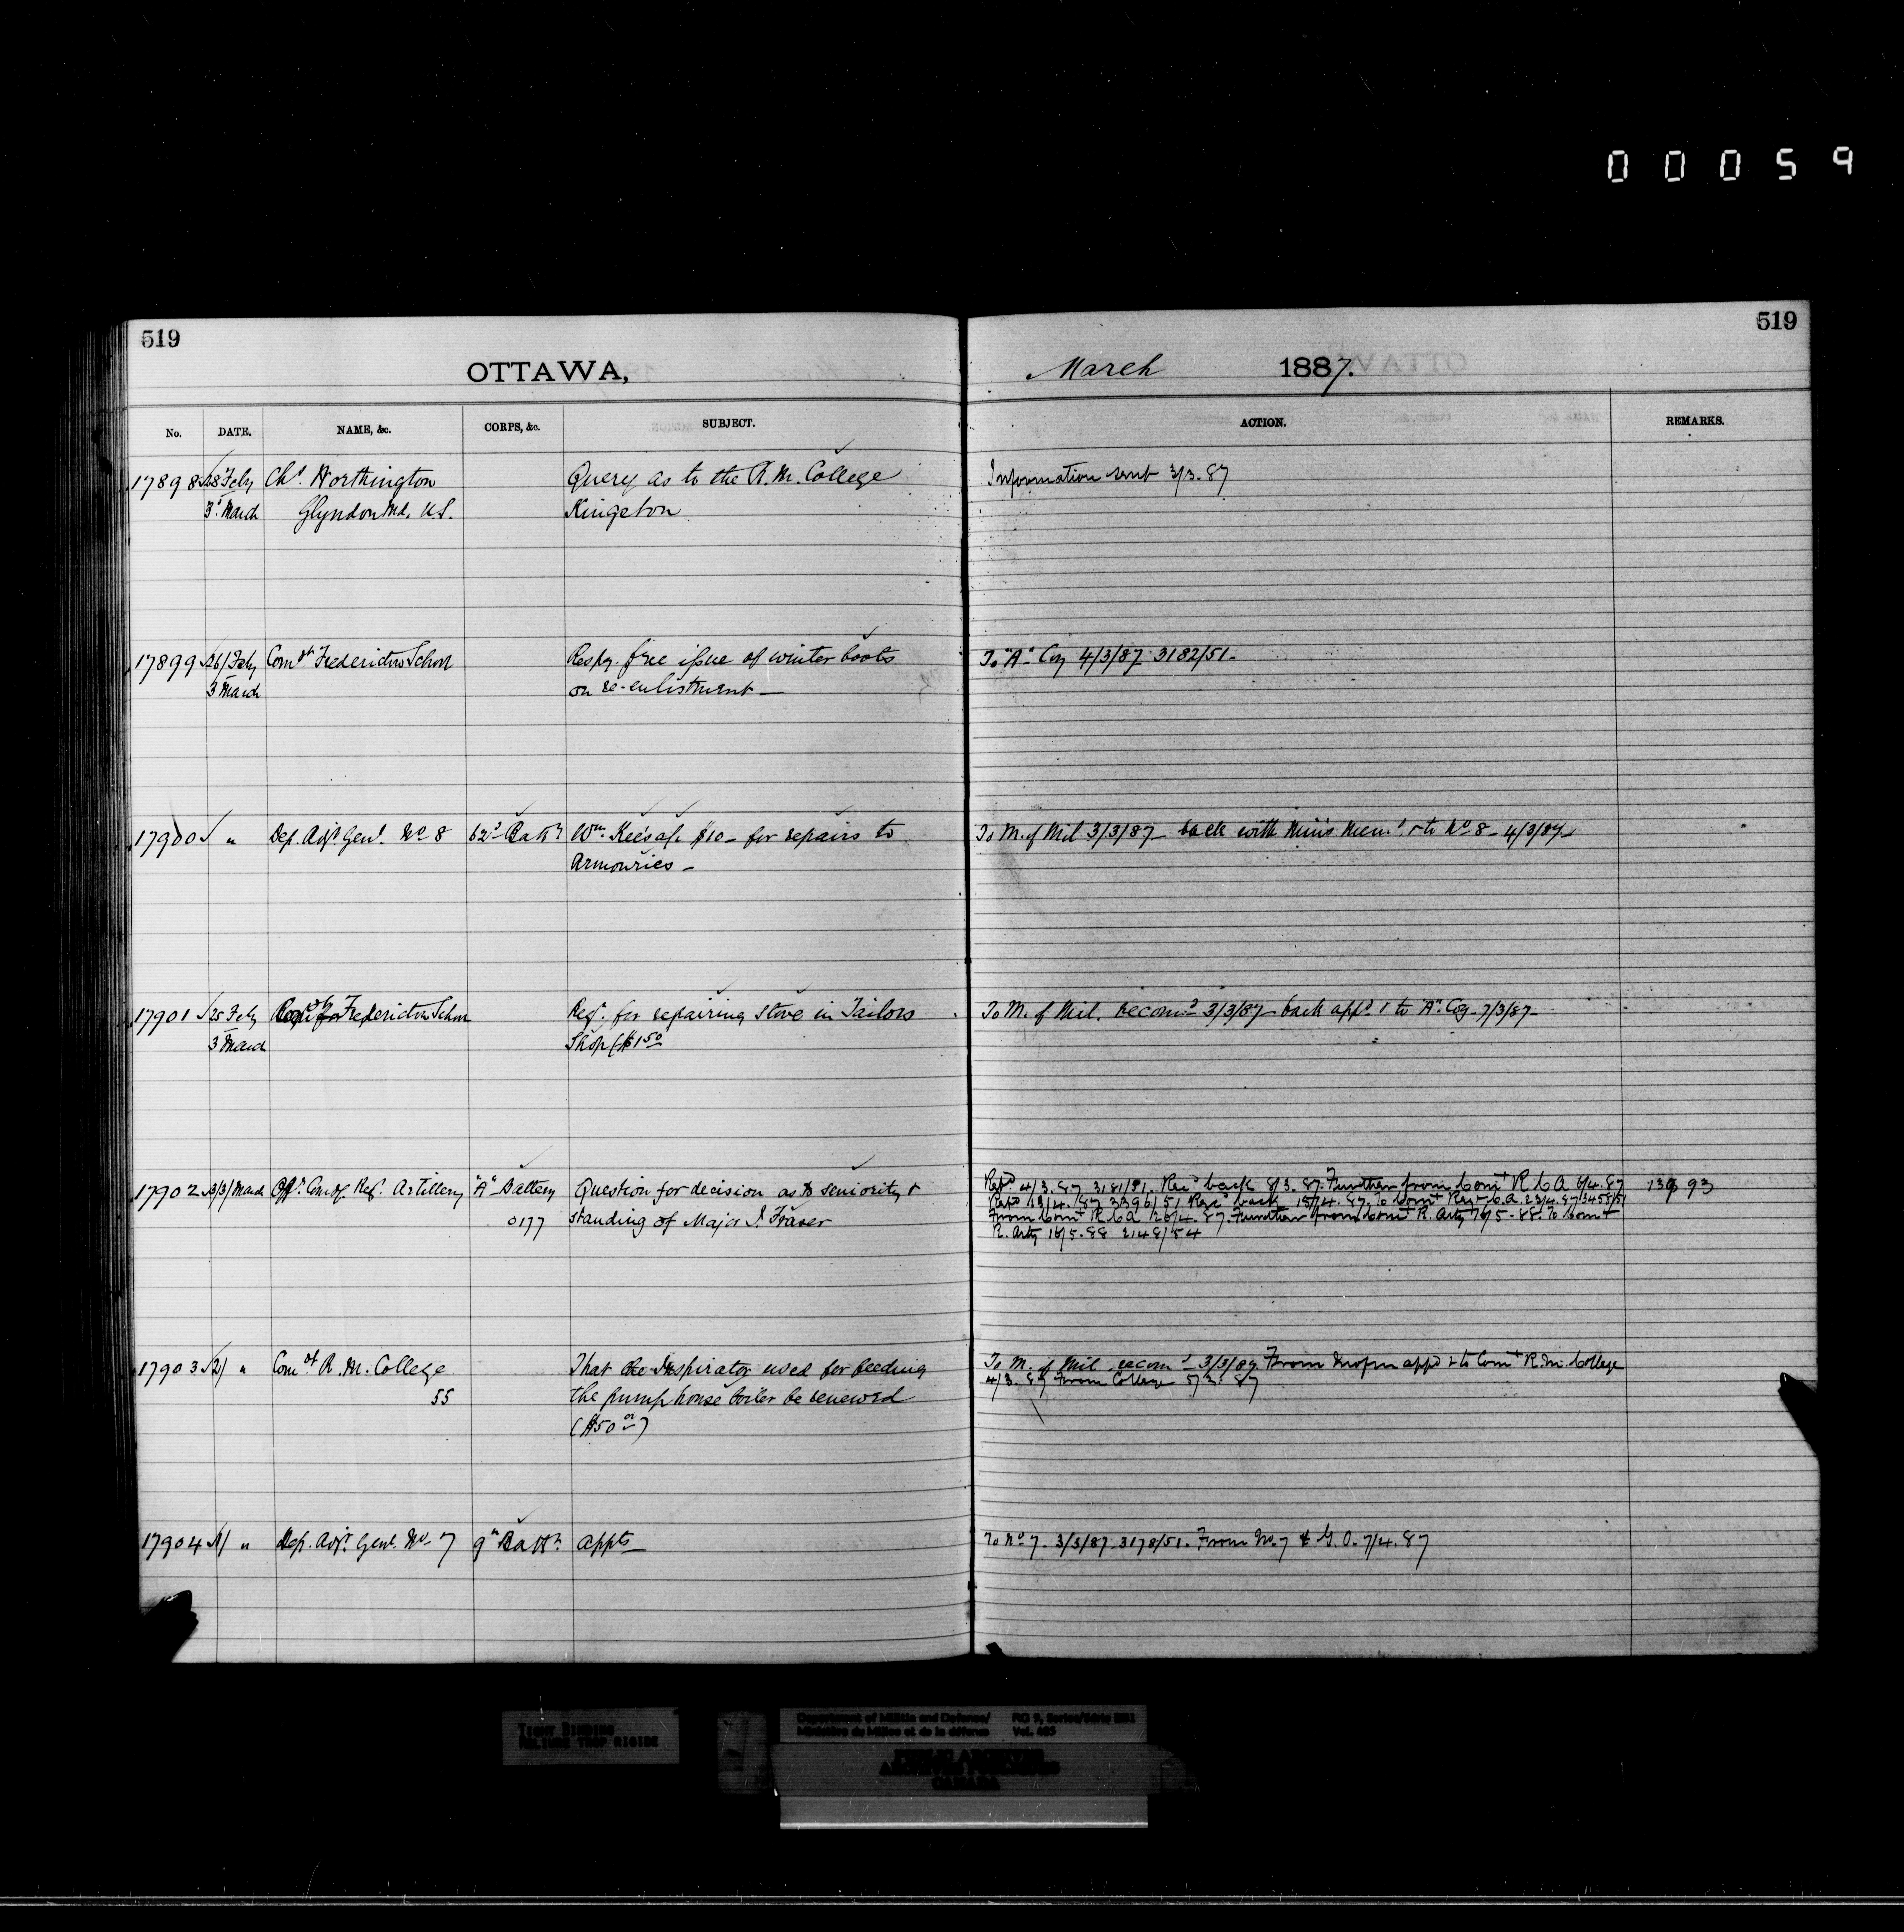 00059
519
519
OTTAWA, March 1887.
No. DATE. NAME, &c. CORPS, &c. SUBJECT. ACTION. REMARKS.
17898 28 Feby Chs. Worthington Query as to the R.M. College Information sent 3/3.87
3d. March Glyndon Md. U.S. Kingston
17899 26/Feby Comdt Fredericton School Respg. free issue of winter boots To "A" Coy 4/3/87 3182/51.
3 March on re-enlistment _
17900 " Dep. Adjt Genl. No 8 62d Battn Wm. Kee's a/c $10 _ for repairs to To M. of Mil 3/3/87 _ back with Min's Mem. & to No 8 _ 4/3/87 _
Armouries _
17901 25 Feby Fredericton School Reqn. for repairing stove in Tailors To M. of Mil. recomd 3/3/87 _ back appd & to "A" Coy _ 7/3/87 _
3 March Shop ($1.50
17902 3/3/March Offr. Comdg. Regt. Artillery "A" Battery Question for decision as to seniority & Repd 4/3.87 3181/51. Recd back 8/3.87. Further from Comt R C A 6/4.87 13993
0177 standing of Major J. Fraser Repd 13/4.87 3396/51. Recd back 15/4.87. To Comt Regt C.A. 23/4.87 3458/51
From Comt R C A 26/4.87. Further from Comt R. Arty 16/5.88. To Comt
R. Arty 16/5.88 2148/54
17903 2/ " Comdt R. M. College That the Inspirator used for feeding To M. of Mil. recomd 3/3/87. From appd & to Comt R.M. College
55 the pump house boiler be renewed 4/3.87 From College 5/3.87
($50 00)
17904 1/ " Dep. Adjt. Genl. No. 7 9th Battn. appts _ To No 7 _ 3/3/87 _ 3178/51. From No. 7 & G.O. 7/4.87
TIGHT BINDING
RELIURE TROP RIGIDE
Department of Militia and Defence/ RG 9, Series/Série
Ministère du Milice et de la défense Vol.
PUBLIC ARCHIVES
ARCHIVES PUBLIQUES
CANADA